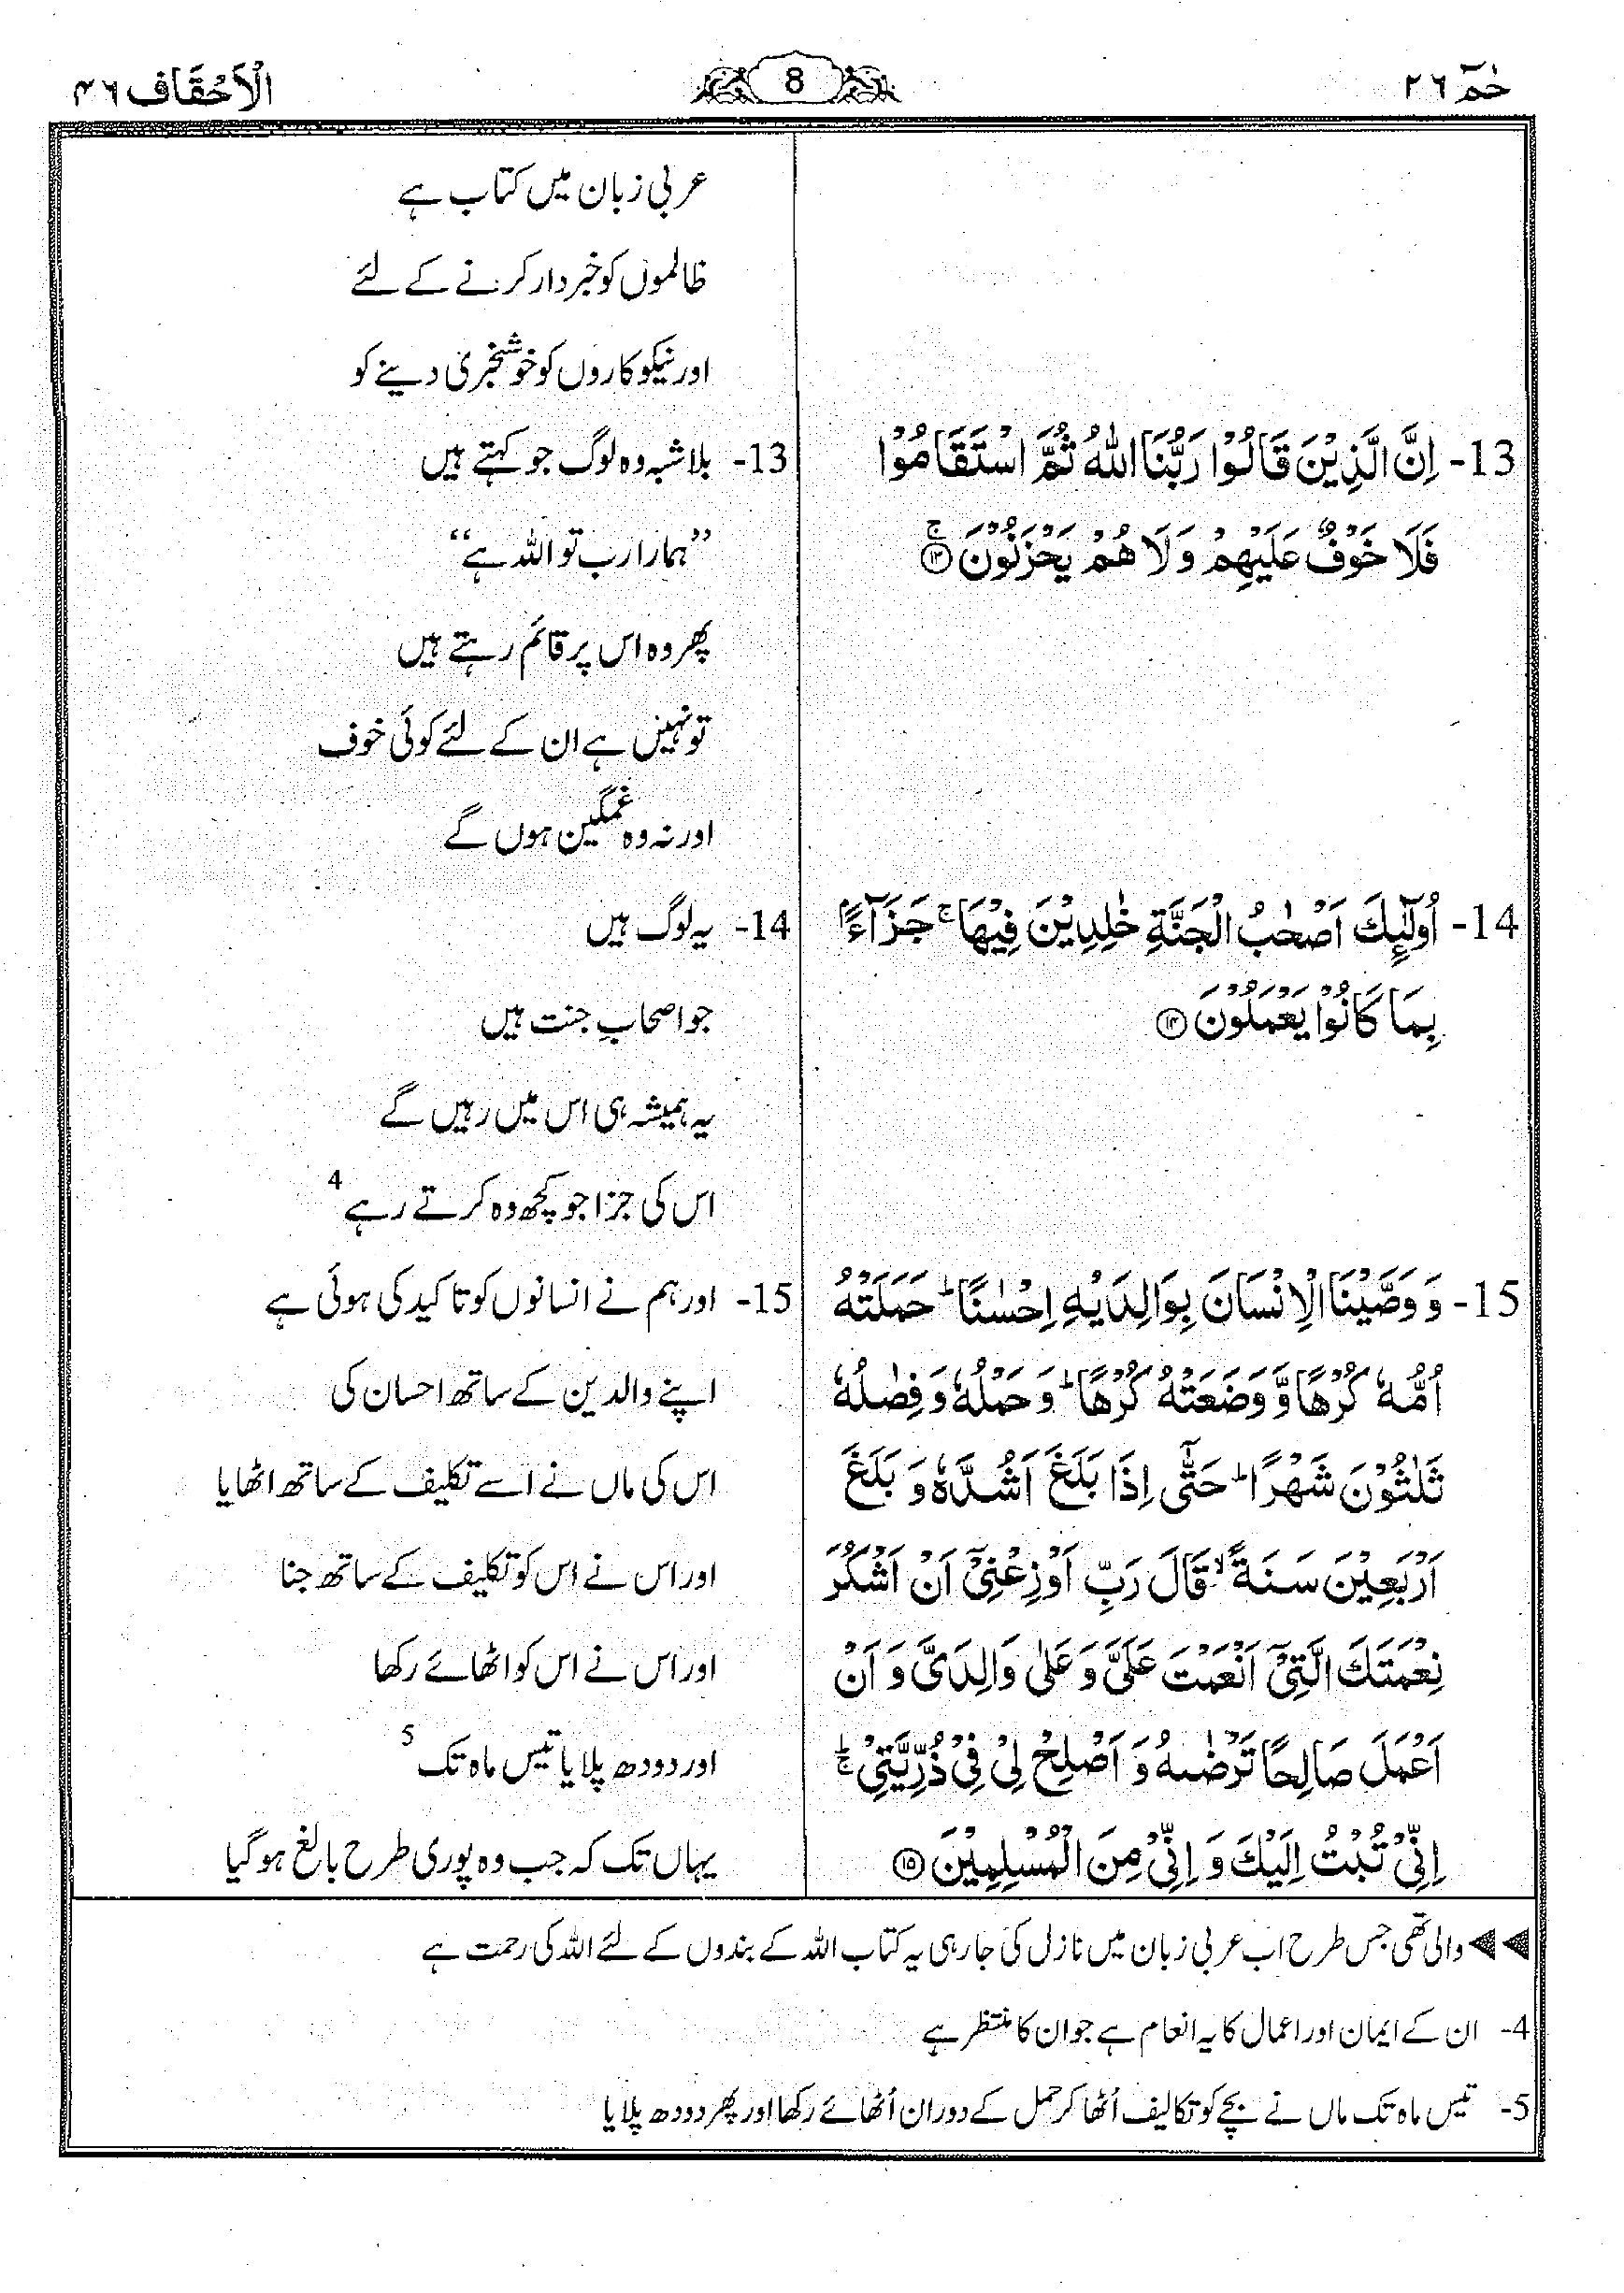 حٰمٓ ٢٦
8
الْاَحْقَاف ٤٦
عربی زبان میں کتاب ہے
ظالموں کو خبردار کرنے کے لئے
اور نیکوکاروں کو خوشخبری دینے کو
13- اِنَّ الَّذِيْنَ قَالُوْا رَبُّنَا اللّٰهُ ثُمَّ اسْتَقَامُوْا
فَلَا خَوْفٌ عَلَيْهِمْ وَ لَا هُمْ يَحْزَنُوْنَ ۚ ﴿۱۳﴾
13- بلاشبہ وہ لوگ جو کہتے ہیں
”ہمارا رب تو اللہ ہے“
پھر وہ اس پر قائم رہتے ہیں
تو نہیں ہے ان کے لئے کوئی خوف
اور نہ وہ غمگین ہوں گے
14- اُولٰٓئِكَ اَصْحٰبُ الْجَنَّةِ خٰلِدِيْنَ فِيْهَا ۚ جَزَآءًۢ
بِمَا كَانُوْا يَعْمَلُوْنَ ﴿۱۴﴾
14- یہ لوگ ہیں
جو اصحابِ جنت ہیں
یہ ہمیشہ ہی اس میں رہیں گے
اس کی جزا جو کچھ وہ کرتے رہے 4
15- وَ وَصَّيْنَا الْاِنْسَانَ بِوَالِدَيْهِ اِحْسٰنًا ؕ حَمَلَتْهُ
اُمُّهٗ كُرْهًا وَّ وَضَعَتْهُ كُرْهًا ؕ وَ حَمْلُهٗ وَ فِصٰلُهٗ
ثَلٰثُوْنَ شَهْرًا ؕ حَتّٰۤى اِذَا بَلَغَ اَشُدَّهٗ وَ بَلَغَ
اَرْبَعِيْنَ سَنَةً ۙ قَالَ رَبِّ اَوْزِعْنِيْۤ اَنْ اَشْكُرَ
نِعْمَتَكَ الَّتِيْۤ اَنْعَمْتَ عَلَيَّ وَ عَلٰى وَالِدَيَّ وَ اَنْ
اَعْمَلَ صَالِحًا تَرْضٰىهُ وَ اَصْلِحْ لِيْ فِيْ ذُرِّيَّتِيْ ۚؕ
اِنِّيْ تُبْتُ اِلَيْكَ وَ اِنِّيْ مِنَ الْمُسْلِمِيْنَ ﴿۱۵﴾
15- اور ہم نے انسانوں کو تاکید کی ہوئی ہے
اپنے والدین کے ساتھ احسان کی
اس کی ماں نے اسے تکلیف کے ساتھ اٹھایا
اور اس نے اس کو تکلیف کے ساتھ جنا
اور اس نے اس کو اٹھائے رکھا
اور دودھ پلایا تیس ماہ تک 5
یہاں تک کہ جب وہ پوری طرح بالغ ہو گیا
◀◀ والی تھی جس طرح اب عربی زبان میں نازل کی جا رہی یہ کتاب اللہ کے بندوں کے لئے اللہ کی رحمت ہے
4- ان کے ایمان اور اعمال کا یہ انعام ہے جو ان کا منتظر ہے
5- تیس ماہ تک ماں نے بچے کو تکالیف اُٹھا کر حمل کے دوران اُٹھائے رکھا اور پھر دودھ پلایا